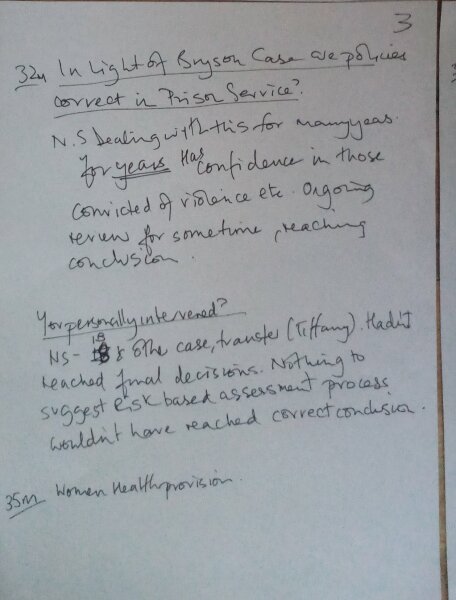 3
32m In Light of Bryson Case are policies
correct in Prison Service?
N.S Dealing with this for many years.
For years Has confidence in those
convicted of violence etc. Ongoing
review for sometime, reaching
conclusion.
You personally intervened?
NS - 18 & other case, transfer (Tiffany). Hadn't
reached final decisions. Nothing to
suggest Risk based assessment process
wouldn't have reached correct conclusion.
35m Women Health provision.